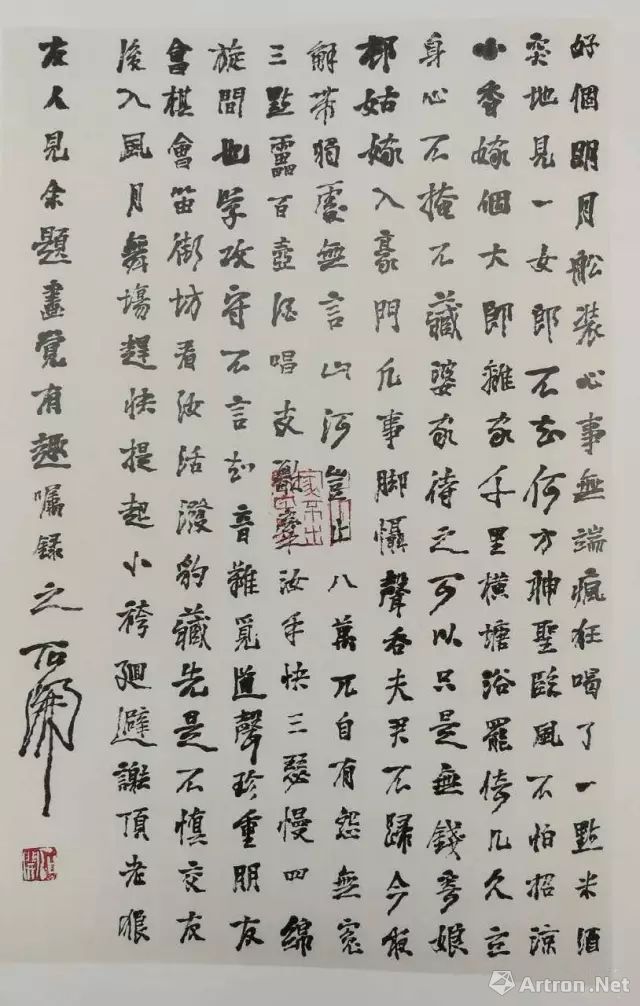 好個明月船裝心事無端瘋狂喝了一點米酒
突地見一女郎不知何方神聖臨風不怕招涼
小香嫁個大郎離家千里橫塘浴罷倚几久立
身心不掩不藏婆家待之可以只是無錢寄娘
鄰姑嫁入豪門凡事腳懾聲吞夫君不歸今夜
解帶獨處無言山河豈止八萬兀自有怨無冤
三點靁百壺酒唱支汝手快三瑟慢四綿
旋間也學攻守不言知音難覓道聲珍重朋友
會棋會笛街坊看汝活潑豹藏先是不慎交友
後入風月舞場趕快提起小袴迴避謝頂老狼
友人見余題畫覺有趣囑錄之石開
Artron.Net